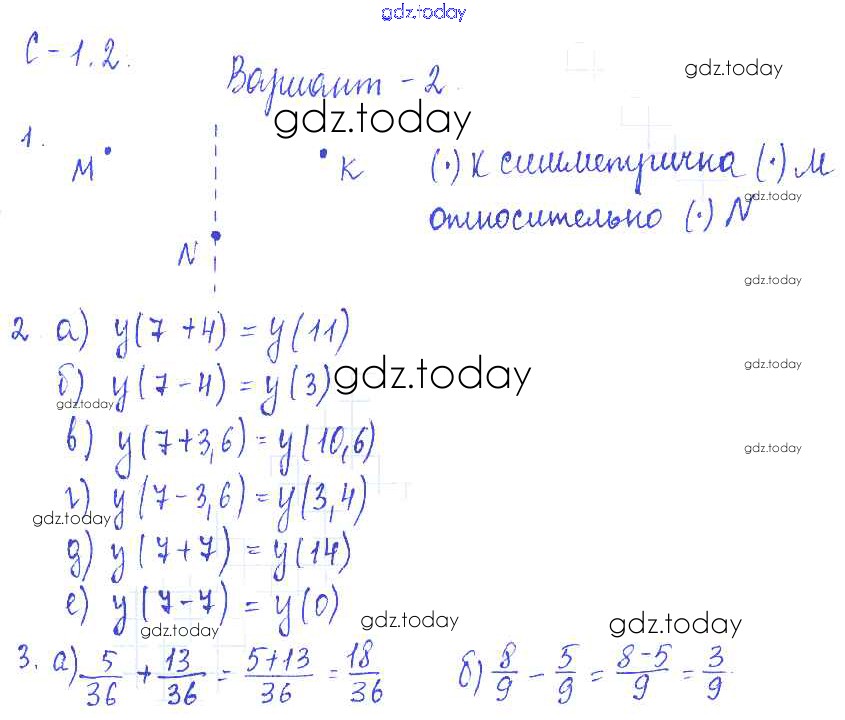 gdz.today
С-1.2.
gdz.today
Вариант - 2.
gdz.today
1.
М К (·) К симметрична (·) М
gdz.today
относительно (·) N
N
gdz.today
2 а) y(7+4) = y(11)
б) y(7-4) = y(3)
gdz.today
gdz.today
gdz.today
в) y(7+3,6) = y(10,6)
gdz.today
г) y(7-3,6) = y(3,4)
gdz.today
д) y(7+7) = y(14)
е) y(7-7) = y(0)
gdz.today
gdz.today
gdz.today
3. а) 5/36 + 13/36 = 5+13/36 = 18/36 б) 8/9 - 5/9 = 8-5/9 = 3/9